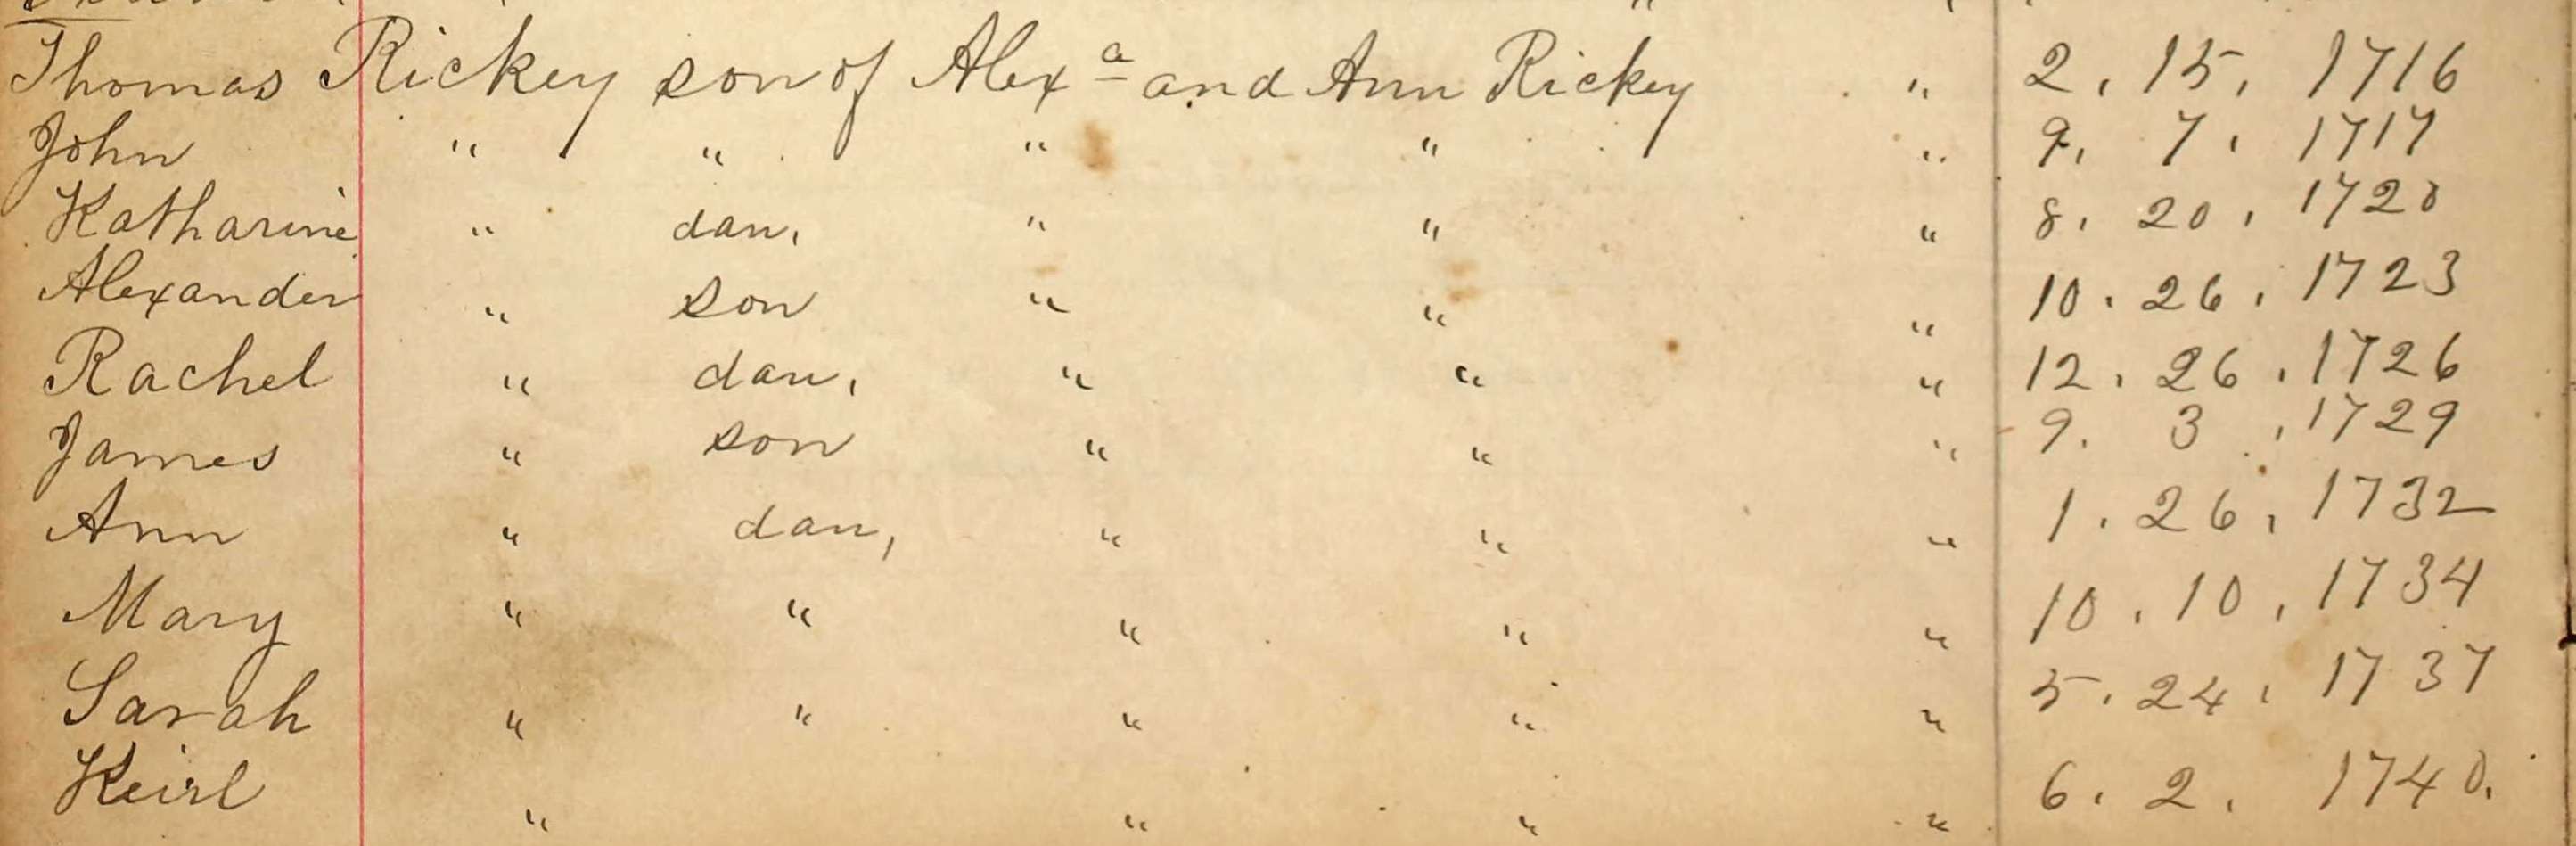 Thomas Rickey son of Alex a and Ann Rickey " 2. 15. 1716
John " " " " " 9. 7. 1717
Katharine " dau. " " " 8. 20. 1720
Alexander " son " " " 10. 26. 1723
Rachel " dau. " " " 12. 26. 1726
James " son " " " 9. 3. 1729
Ann " dau, " " " 1. 26. 1732
Mary " " " " " 10. 10. 1734
Sarah " " " " " 5. 24. 1737
Keirl " " " " 6. 2. 1740.